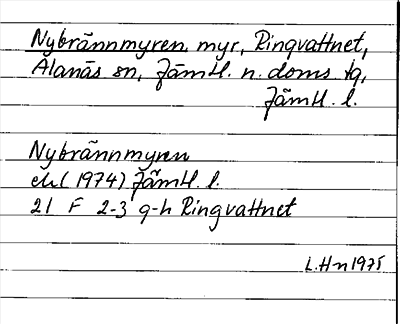 Nybrännmyren myr, Ringvattnet,
Alanäs sn, Jämtl. n. doms tg,
Jämtl. l.
Nybrännmyren
ek (1974) Jämtl. l.
21 F 2-3 g-h Ringvattnet
L.Hn 1975